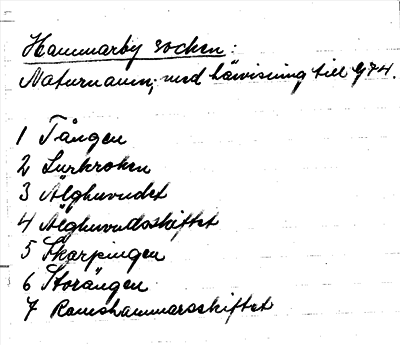 Hammarby socken:
Naturnamn, med hänvisning till 974.
1 Tången
2 Lurkroken
3 Älghuvudet
4 Älghuvudsskiftet
5 Skarpingen
6 Storängen
7 Ramshammarsskiftet